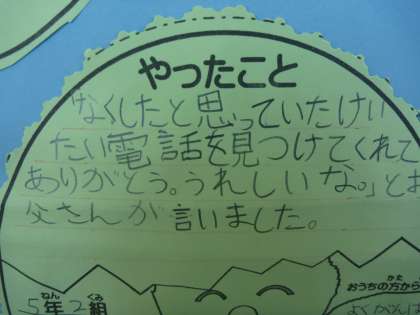 やったこと
「なくしたと思っていたけい
たい電話を見つけてくれて
ありがとう。うれしいな。」とお
父さんが言いました。
おうちの方から
かた
5年2組
ねん くみ